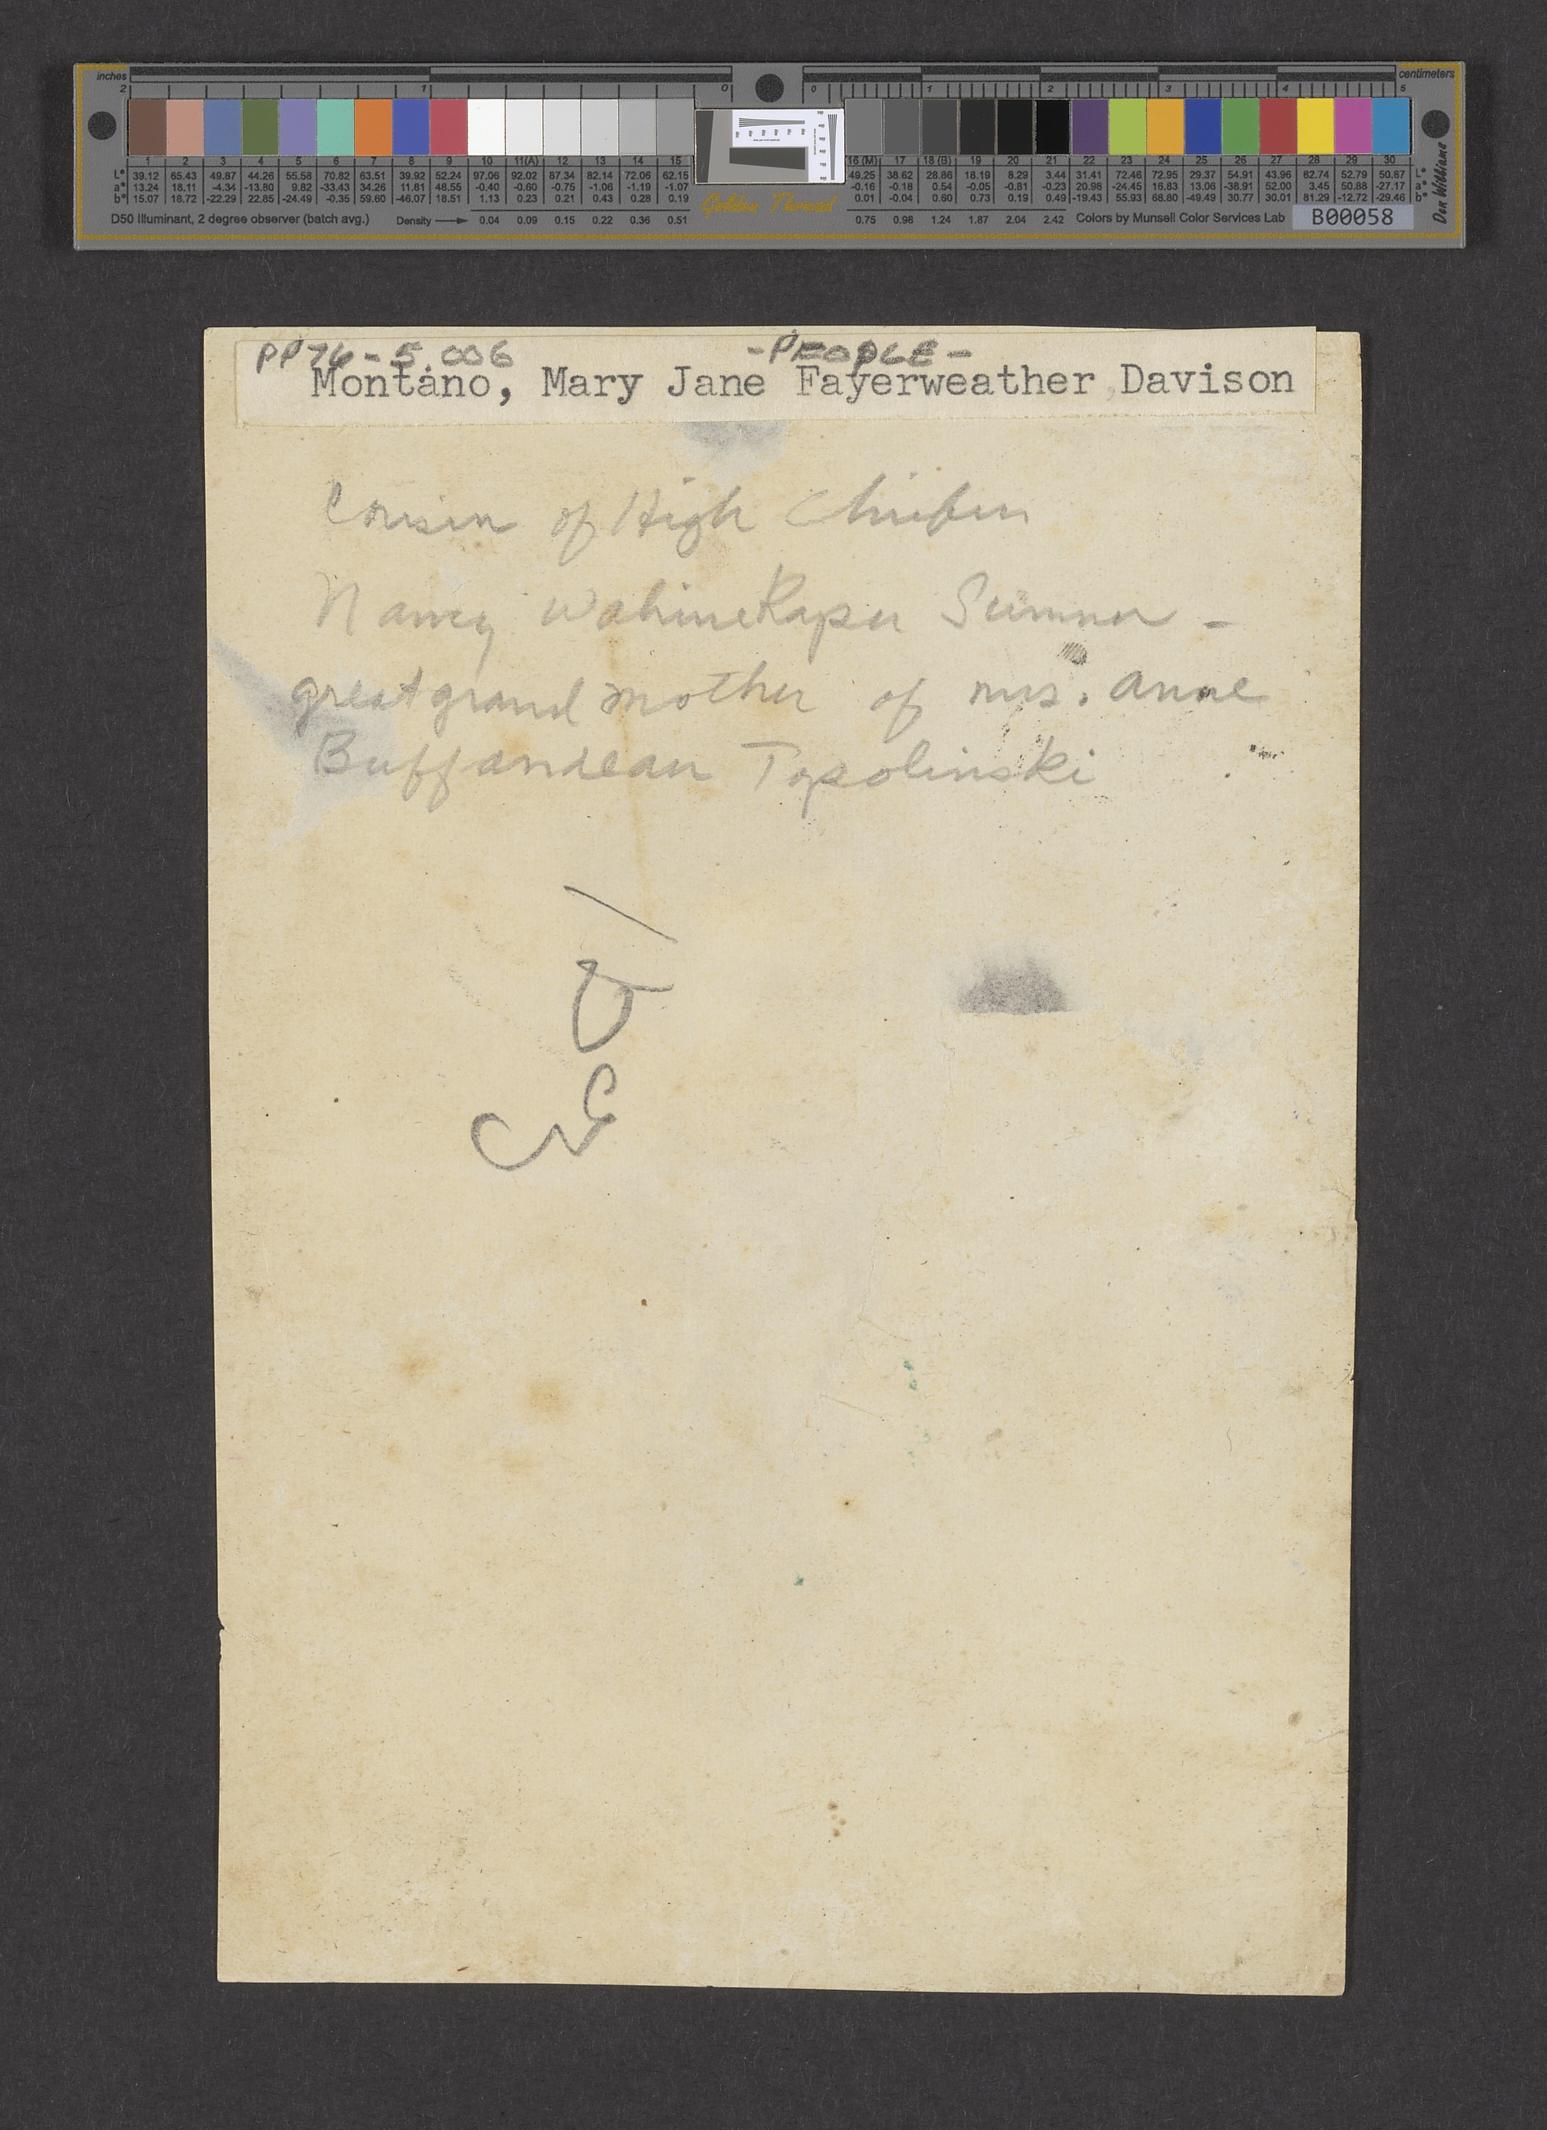 inches centimeters
2 1 0 0 1 2 3 4 5
1 2 3 4 5 6 7 8 9 10 11(A) 12 13 14 15 16 (M) 17 18 (B) 19 20 21 22 23 24 25 26 27 28 29 30
L* 39.12 65.43 49.87 44.26 55.58 70.82 63.51 39.92 52.24 97.06 92.02 87.34 82.14 72.06 62.15 49.25 38.62 28.86 18.19 8.29 3.44 31.41 72.46 72.95 29.37 54.91 43.96 82.74 52.79 50.87 L*
a* 13.24 18.11 -4.34 -13.80 9.82 -33.43 34.26 11.81 48.55 -0.40 -0.60 -0.75 -1.06 -1.19 -1.07 -0.16 -0.18 0.54 -0.05 -0.81 -0.23 20.98 -24.45 16.83 13.06 -38.91 52.00 3.45 50.88 -27.17 a*
b* 15.07 18.72 -22.29 22.85 -24.49 -0.35 59.60 -46.07 18.51 1.13 0.23 0.21 0.43 0.28 0.19 0.01 -0.04 0.60 0.73 0.19 0.49 -19.43 55.93 68.80 -49.49 30.77 30.01 81.29 -12.72 -29.46 b*
D50 Illuminant, 2 degree observer (batch avg.) Density 0.04 0.09 0.15 0.22 0.36 0.51 Golden Thread 0.75 0.98 1.24 1.87 2.04 2.42 Colors by Munsell Color Services Lab B00058
Don Williams
PP76-5.006 -PEOPLE-
Montano, Mary Jane Fayerweather Davison
Cousin of High Chiefess
Nancy WahineKapu Sumner -
greatgrandmother of mrs. Anne
Buffandeau Topolinski